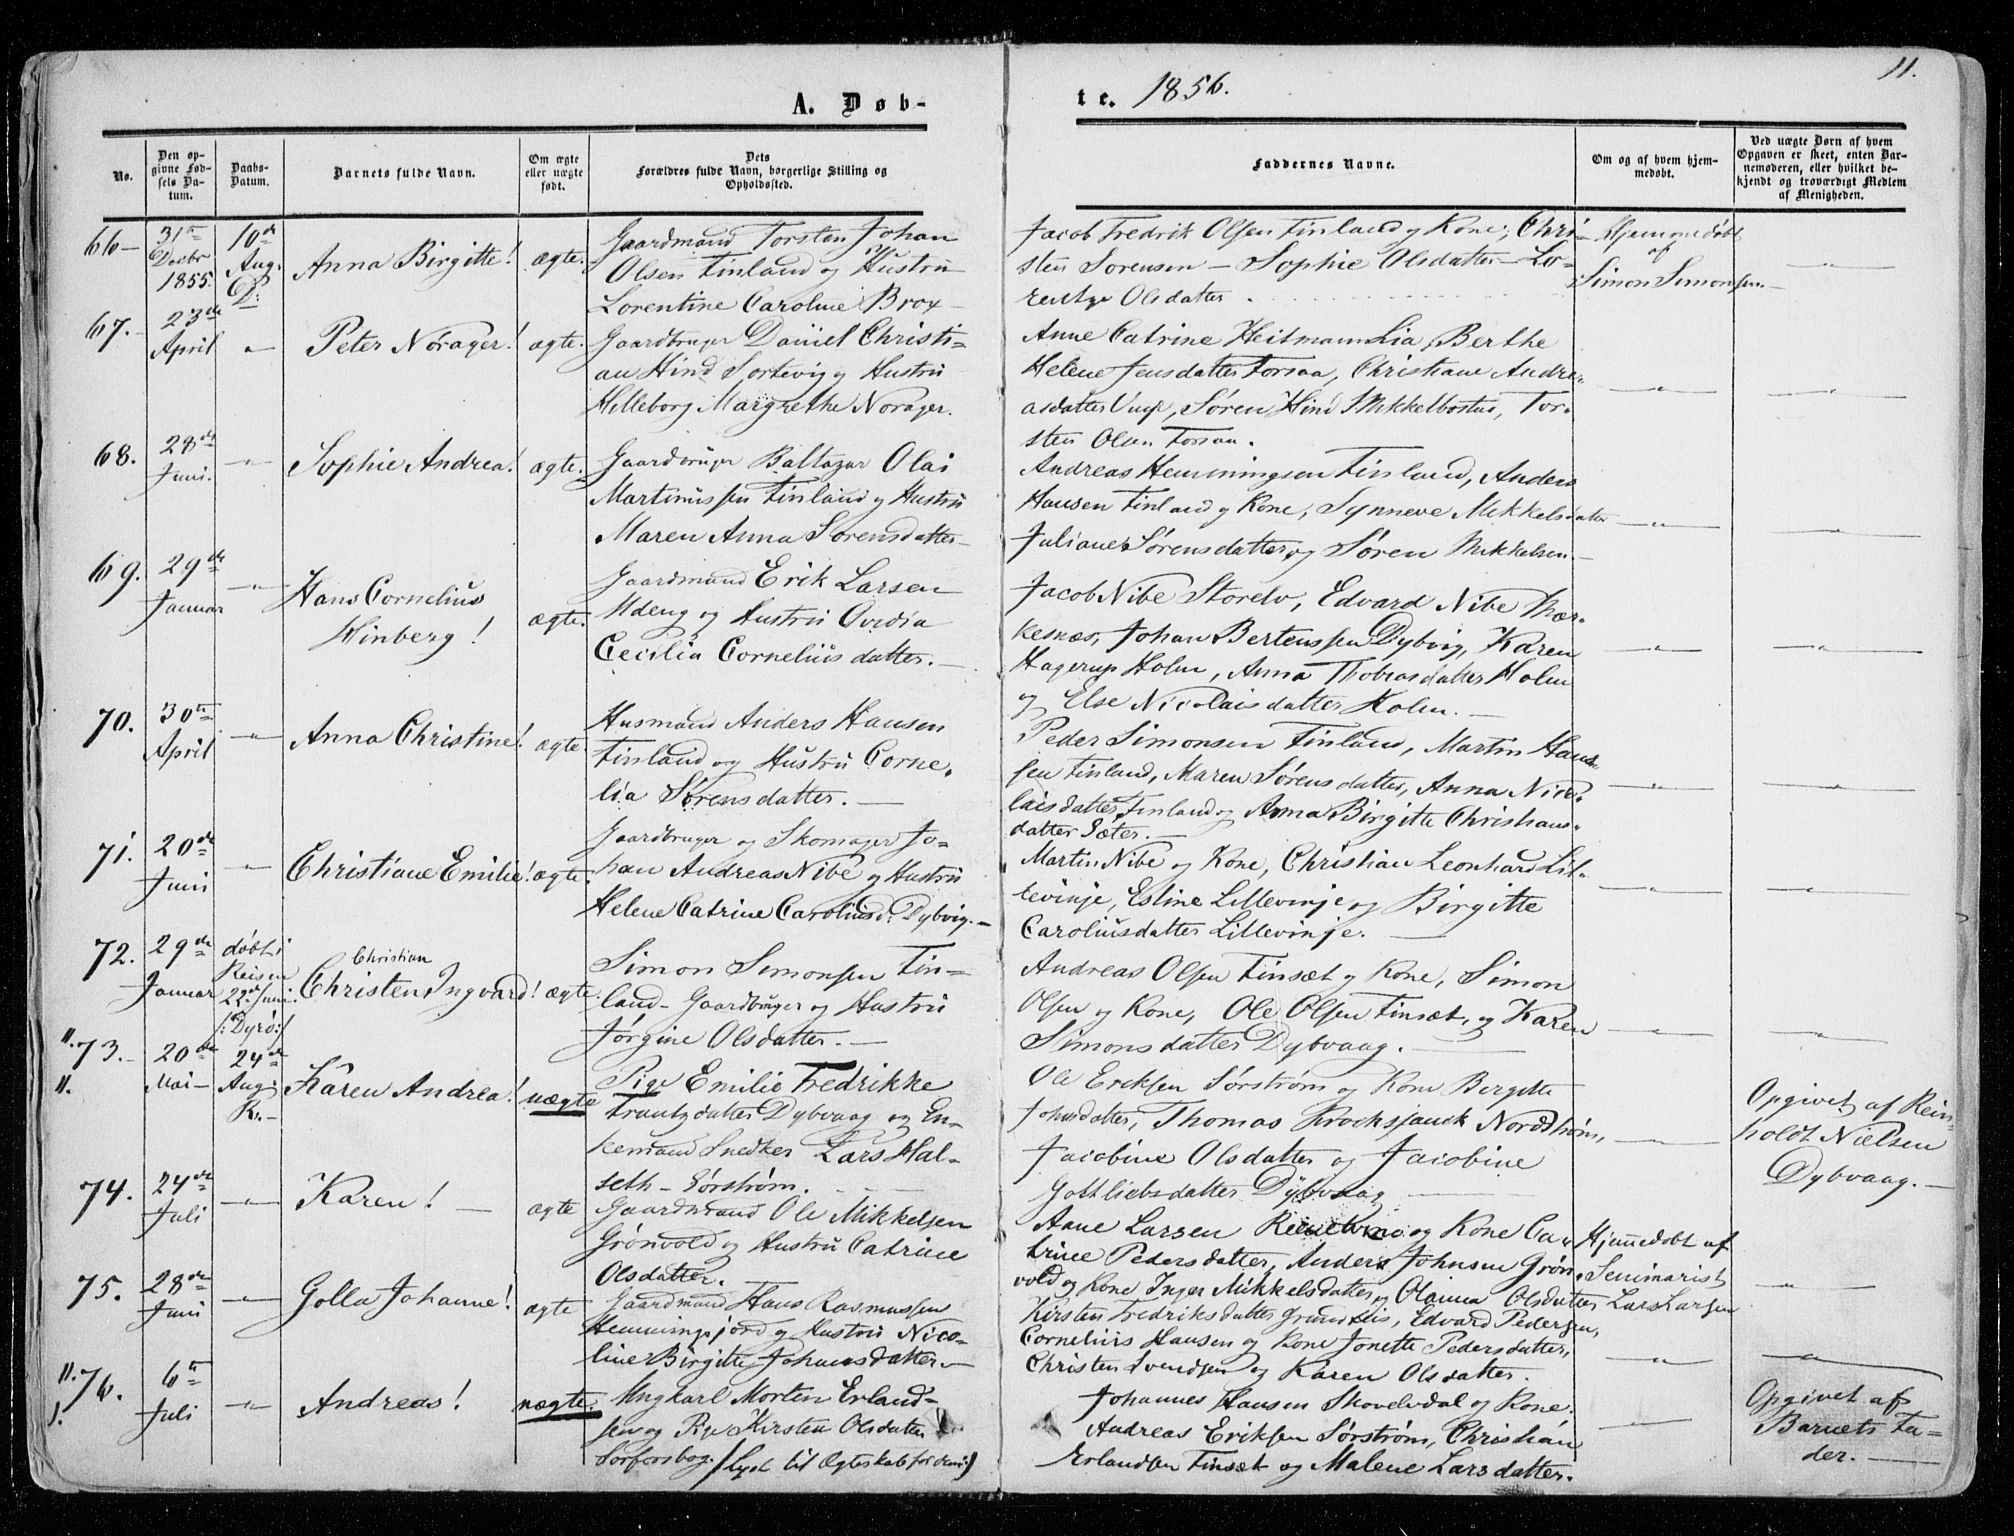 11.
A. Døb-
te. 1856.
No.
Den op-
givne Fød-
sels Da-
tum.
Daabs-
Datum.
Barnets fulde Navn.
Om ægte
eller uægte
født.
Dets
Forældres fulde Navn, borgerlige Stilling og
Opholdssted.
Faddernes Navne.
Om og af hvem hjem-
medøbt.
Ved uægte Børn af hvem
Opgaven er skeet, enten Bar-
nemoderen, eller hvilket be-
kjendt og troværdigt Medlem
af Menigheden.
66-
31te
Decbr
1855.
10de
Aug.
D:
Anna Birgitte!
ægte.
Gaardmand Torsten Johan
Olsen Finland og Hustru
Lorentine Caroline Brox-
Jacob Fredrik Olsen Finland og Kone, Chri-
sten Sørensen - Sophie Olsdatter - Lo-
rentze Olsdatter.
Hjemmedøbt
af
Simon Simonsen.
67.
23de
April
Peter Norager!
ægte.
Gaardbruger Daniel Christi=
an Hind Sørtevig og Hustru
Hilleborg Margrethe Norager.
Anne Catrine Heitmann Lia, Berthe
Helene Jensdatter Forsaa, Christiane Andre-
asdatter Vugt, Søren Hind Mikkelbostad, Tor-
sten Olsen Forsaa.
68.
28de
Juni.
Sophie Andrea!
ægte.
Gaardbruger Baltazar Olai
Martinussen Finland og Hustru
Maren Anna Sørensdatter-
Andreas Henningsen Finland, Anders
Hansen Finland og Kone, Synneve Mikkelsdatter
Juliane Sørensdatter og Søren Mikkelsen.-
69.
29de
Januar
Hans Cornelius
Winberg!
ægte.
Gaardmand Erik Larsen
Udeng og Hustru Ovidia
Cecilia Cornelius datter.-
Jacob Nibe Storelv, Edvard Nibe Thær-
kesnæs, Johan Bertenssen Dybvig, Karen
Hagerup Holm, Anna Thobiasdatter Holm
og Else Nicolaisdatter Holm.-
70.
30te
April
Anna Christine!
ægte
Husmand Anders Hansen
Finland og Hustru Corne-
lia Sørensdatter.-
Peder Simonsen Finland, Martin Han-
sen Finland, Maren Sørens datter, Anna Nico-
laisdatter Finland og Anna Birgitte Christians-
datter Sæter.-
71.
20de
Juni
Christiane Emilie!
ægte.
Gaardbruger og Skomager Jo-
han Andreas Nibe og Hustru
Helene Catrine Caroliusd: Dybvig.-
Martin Nibe og Kone, Christian Leonhard Lil-
levinje, Esline Lillevinje og Birgitte
Caroliusdatter Lillevinje.-
72.
29de
Januar
døbt i
Reisen
22de Juni.
/:Dyrø:/
Christian
Christen Ingvard!
ægte.
Simon Simonsen Fin-
land- Gaardbruger og Hustru
Jørgine Olsdatter.-
Andreas Olsen Finsæt og Kone, Simon
Olsen og Kone, Ole Olsen Finsæt, og Karen
Simonsdatter Dybvaag.-
73.-
20de
Mai-
24de
Aug:
R.-
Karen Andrea!
uægte
Pige Emilie Fredrikke
Frantzdatter Dybvaag og En-
kemand Snedker Lars Hal-
seth - Sørstrøm.
Ole Eriksen Sørstrøm og Kone Bergitte
Johnsdatter, Thomas Nordstrøm,
Jacobine Olsdatter og Jacobine
Gottliebsdatter Dybvaag
Opgivet af Rein-
holdt Nielsen
Dybvaag.-
74.
24de
Juli
Karen!
ægte
Gaardmand Ole Mikkelsen
Grønvold og Hustru Catrine
Olsdatter.
Aane Larsen og Kone Ca-
trine Pedersdatter, Anders Johnsen Grøn-
vold og Kone Inger Mikkelsdatter, og Olianna Olsdatter
Hjemmedøbt af
Seminarist
Lars Larsen
75.
28de
Juni
Golla Johanne!
ægte
Gaardmand Hans Rasmussen
Henningsjord og Hustru Nico-
line Birgitte Johansdatter-
Kirsten Fredriksdatter, Edvard Pedersen,
Cornelius Hansen og Kone Jonette Pedersdatter,
Christen Svendsen og Karen Olsdatter.
11. 76.
1.
6te
Juli
Andreas!
uægte.
Ungkarl Morten Erland-
sen og Pige Kirsten Olsdatter
Sørforsbog. /:Lyst til Ægteskab for dem:/
Johannes Hansen Skovelvdal og Kone.
Andreas Eriksen Sørstrøm, Christian
Erlandsen Finsæt og Malene Larsdatter.
Opgivet af
Barnets Fa-
der.-